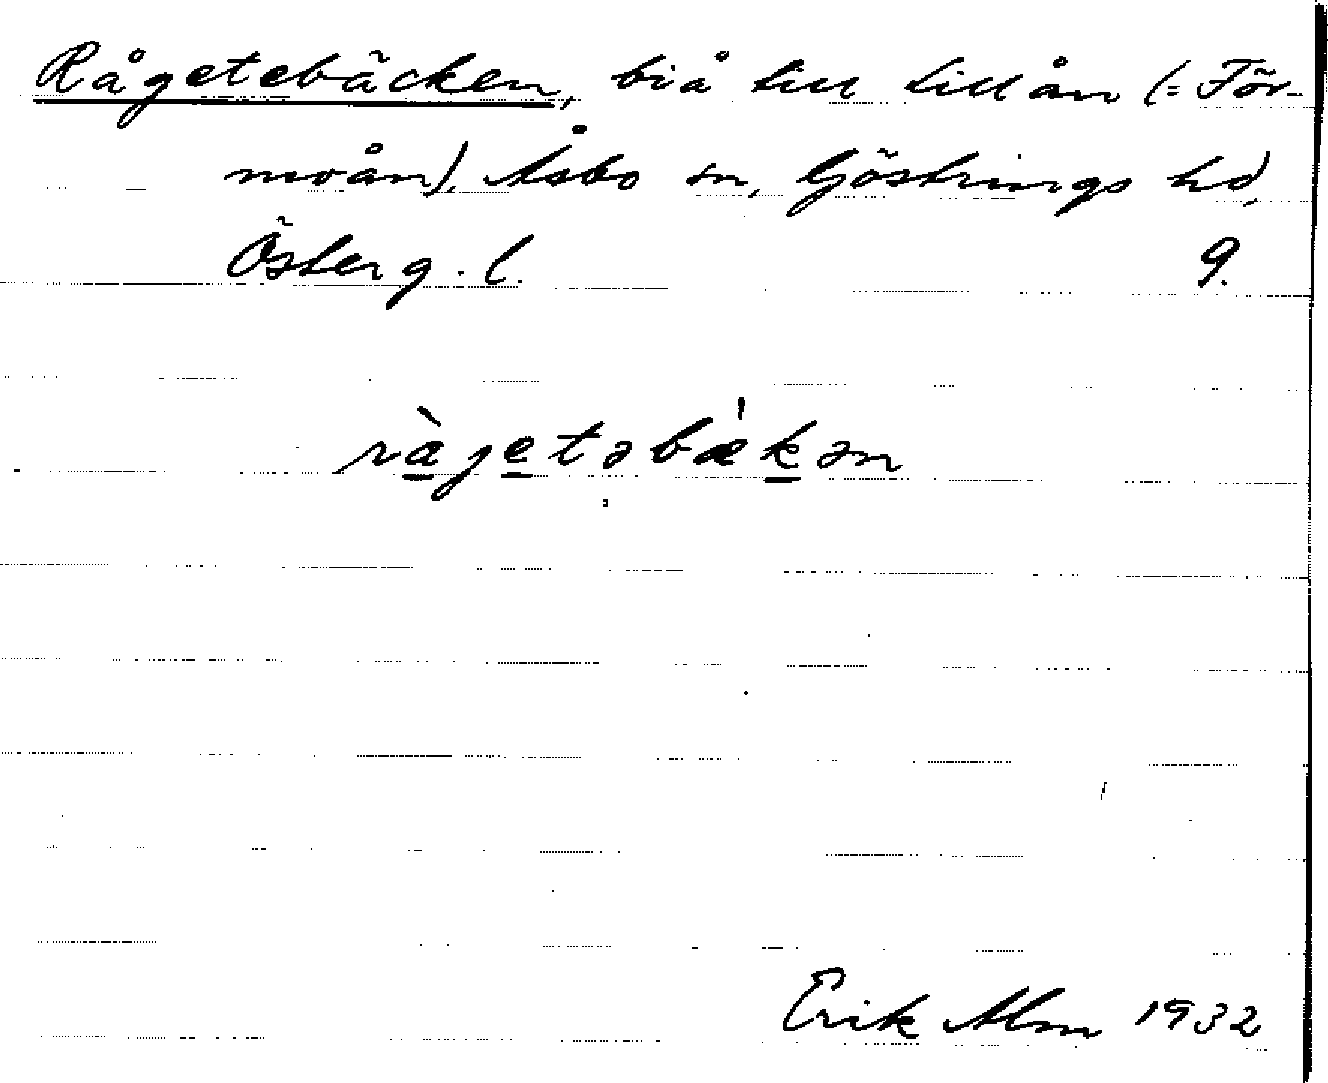 Rågetebäcken, biå till Lillån (= För-
movån), Åsbo sn, Göstrings hd,
Österg. l. 9.
ràjetəbækən
Erik Alm 1932